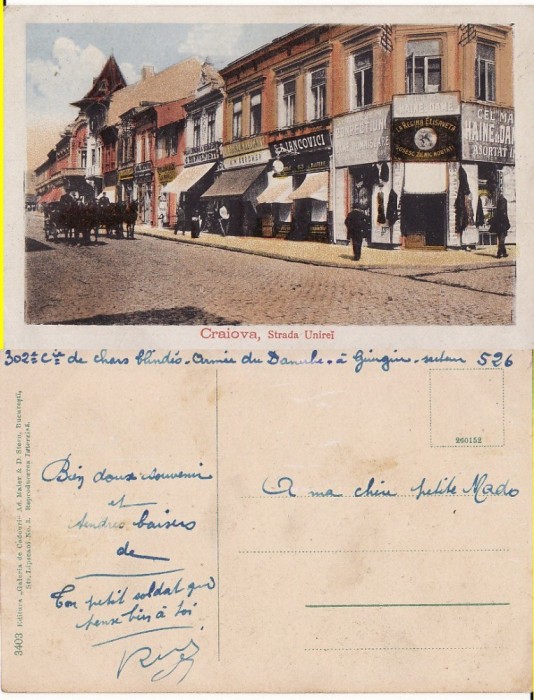 S. A. IANCOVICI
CONFECȚIUNI
HAINE de DAME
LA REGINA ELISABETA
CEL MA
HAINE de DA
ASORTAT
Craiova, Strada Unirei
302e Cie de chars blindés - Armée du Danube - à Giurgiu - secteur 526
260152
Bien doux souvenir
et
tendres baisers
de
Ton petit soldat qui
pense bien à toi
A ma chère petite Mado
3403 Editura „Galeria de Cadouri" Ad. Maier & D. Stern, București,
Str. Lipscani No. 8. Reproducerea Interzisă.